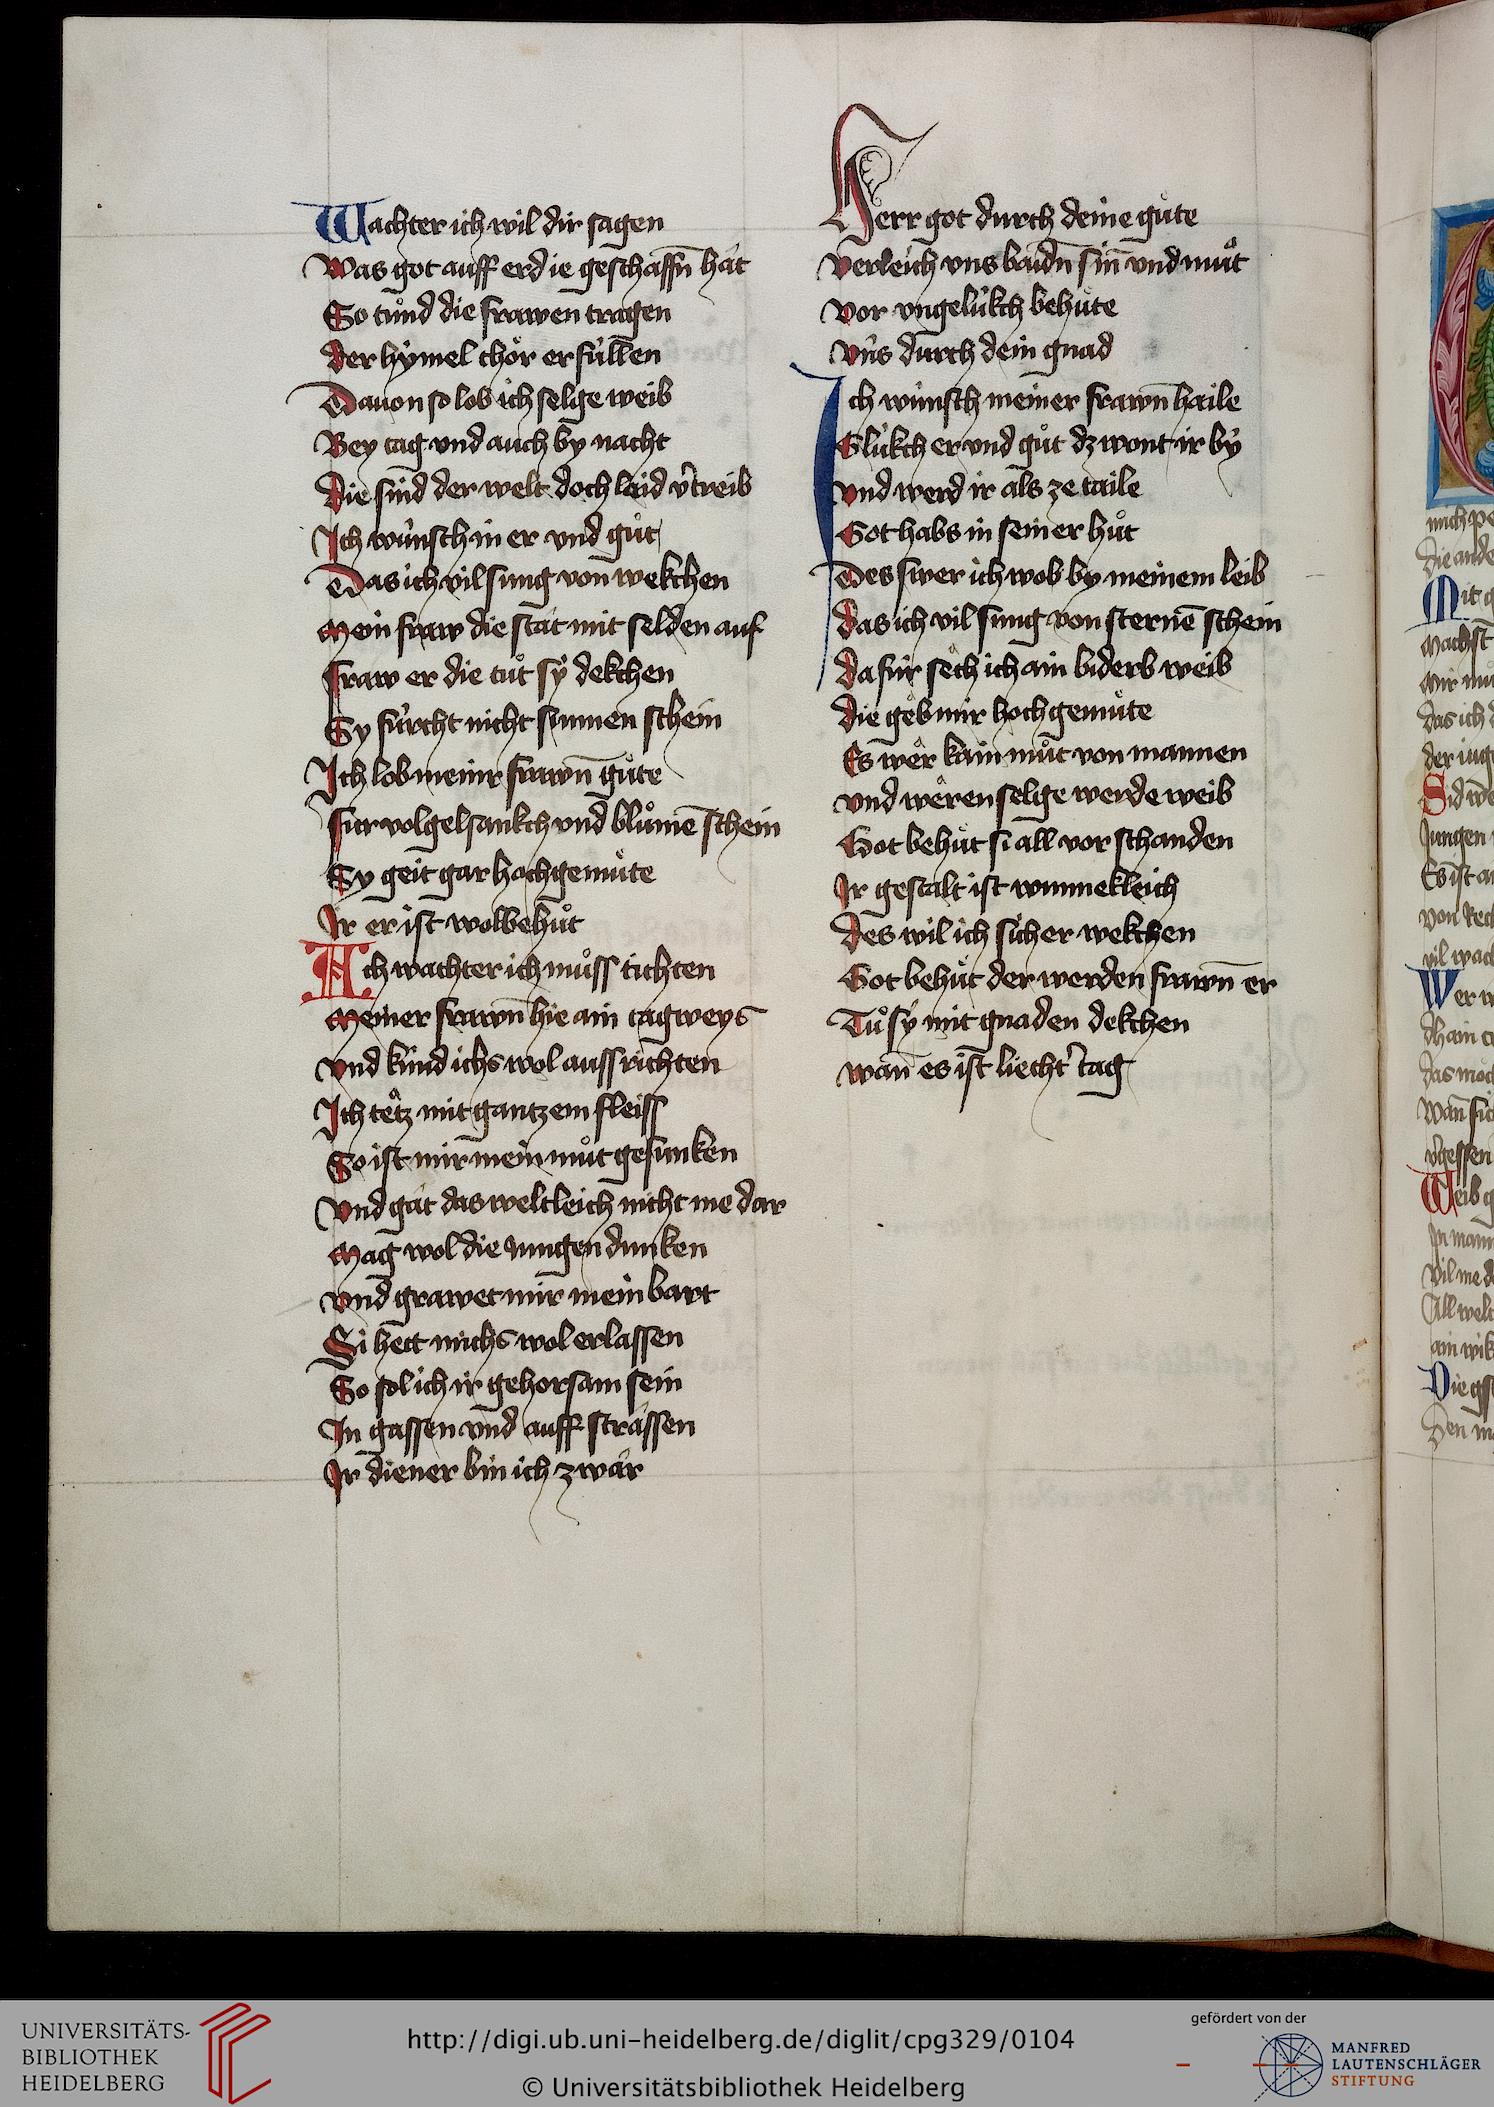 Wachter ich wil dir sagen
Was got auff erd ie geschaffn̄ hat
So tu̇nd die frawen tragen
der hymel chör erfüllen
Dauon so lob ich selge weib
Bey tag vnd auch by nacht
Die sind der welt doch laid v̓treib
Ich wünsch in er vnd gůt
Das ich vil sung von wekchen
Mein fraw die stat mit selden auf
Fraw er die tůt sy dekchen
Sy fürcht nicht sunnen schein
Ich lob meinr frawn̄ gůte
Fur volgelsankch vnd blůmē schein
Sy geit gar hochgemůte
Ir er ist wolbehůt
Ach wachter ich můss tichten
Meiner frawn̄ hie ain tagweys
Vnd künd ichs wol aussrichten
Ich tetz mit gantzem fleiss
So ist mir mein můt gesunken
Vnd gat das weltleich nicht me dar
Mag wol die iungen dunken
Vnd grawet mir mein bart
Si hett michs wol erlassen
So sol ich ir gehorsam sein
In gassen vnd auff strassen
Ir diener bin ich zwar
Herr got durch deine gůte
Verleich vns baidn̄ sin̄ vnd můt
Vor vngelükch behůte
Vns durch dein gnad
Ich wünsch meiner frawn̄ haile
Glükch er vnd gůt dz wont ir by
Vnd werd ir als ze taile
Got habs in seiner hůt
Des swer ich wol by meinem leib
Das ich vil sung von sternē schein
Dafür sech ich ain biderb weib
Die geb mir hochgemůte
Es wer kain můt von mannen
Vnd weren selge werde weib
Got behůt si all vor schanden
Ir gestalt ist wunnekleich
Des wil ich sicher wekchen
Got behůt der werden frawn̄ er
Tů sy mit gnaden dekchen
Wan̄ es ist liechtr̓ tag
mich
die ande
Mit
machst
mir
das ich
der iug
Sid
Jungen
Es ist
von
vil
Wer
das
Wan̄
v̓gessen
Weib
Jn
Vil me
All welt
ain
Die
Den
UNIVERSITÄTS-
BIBLIOTHEK
HEIDELBERG
http://digi.ub.uni-heidelberg.de/diglit/cpg329/0104
© Universitätsbibliothek Heidelberg
gefördert von der
MANFRED
LAUTENSCHLÄGER
STIFTUNG